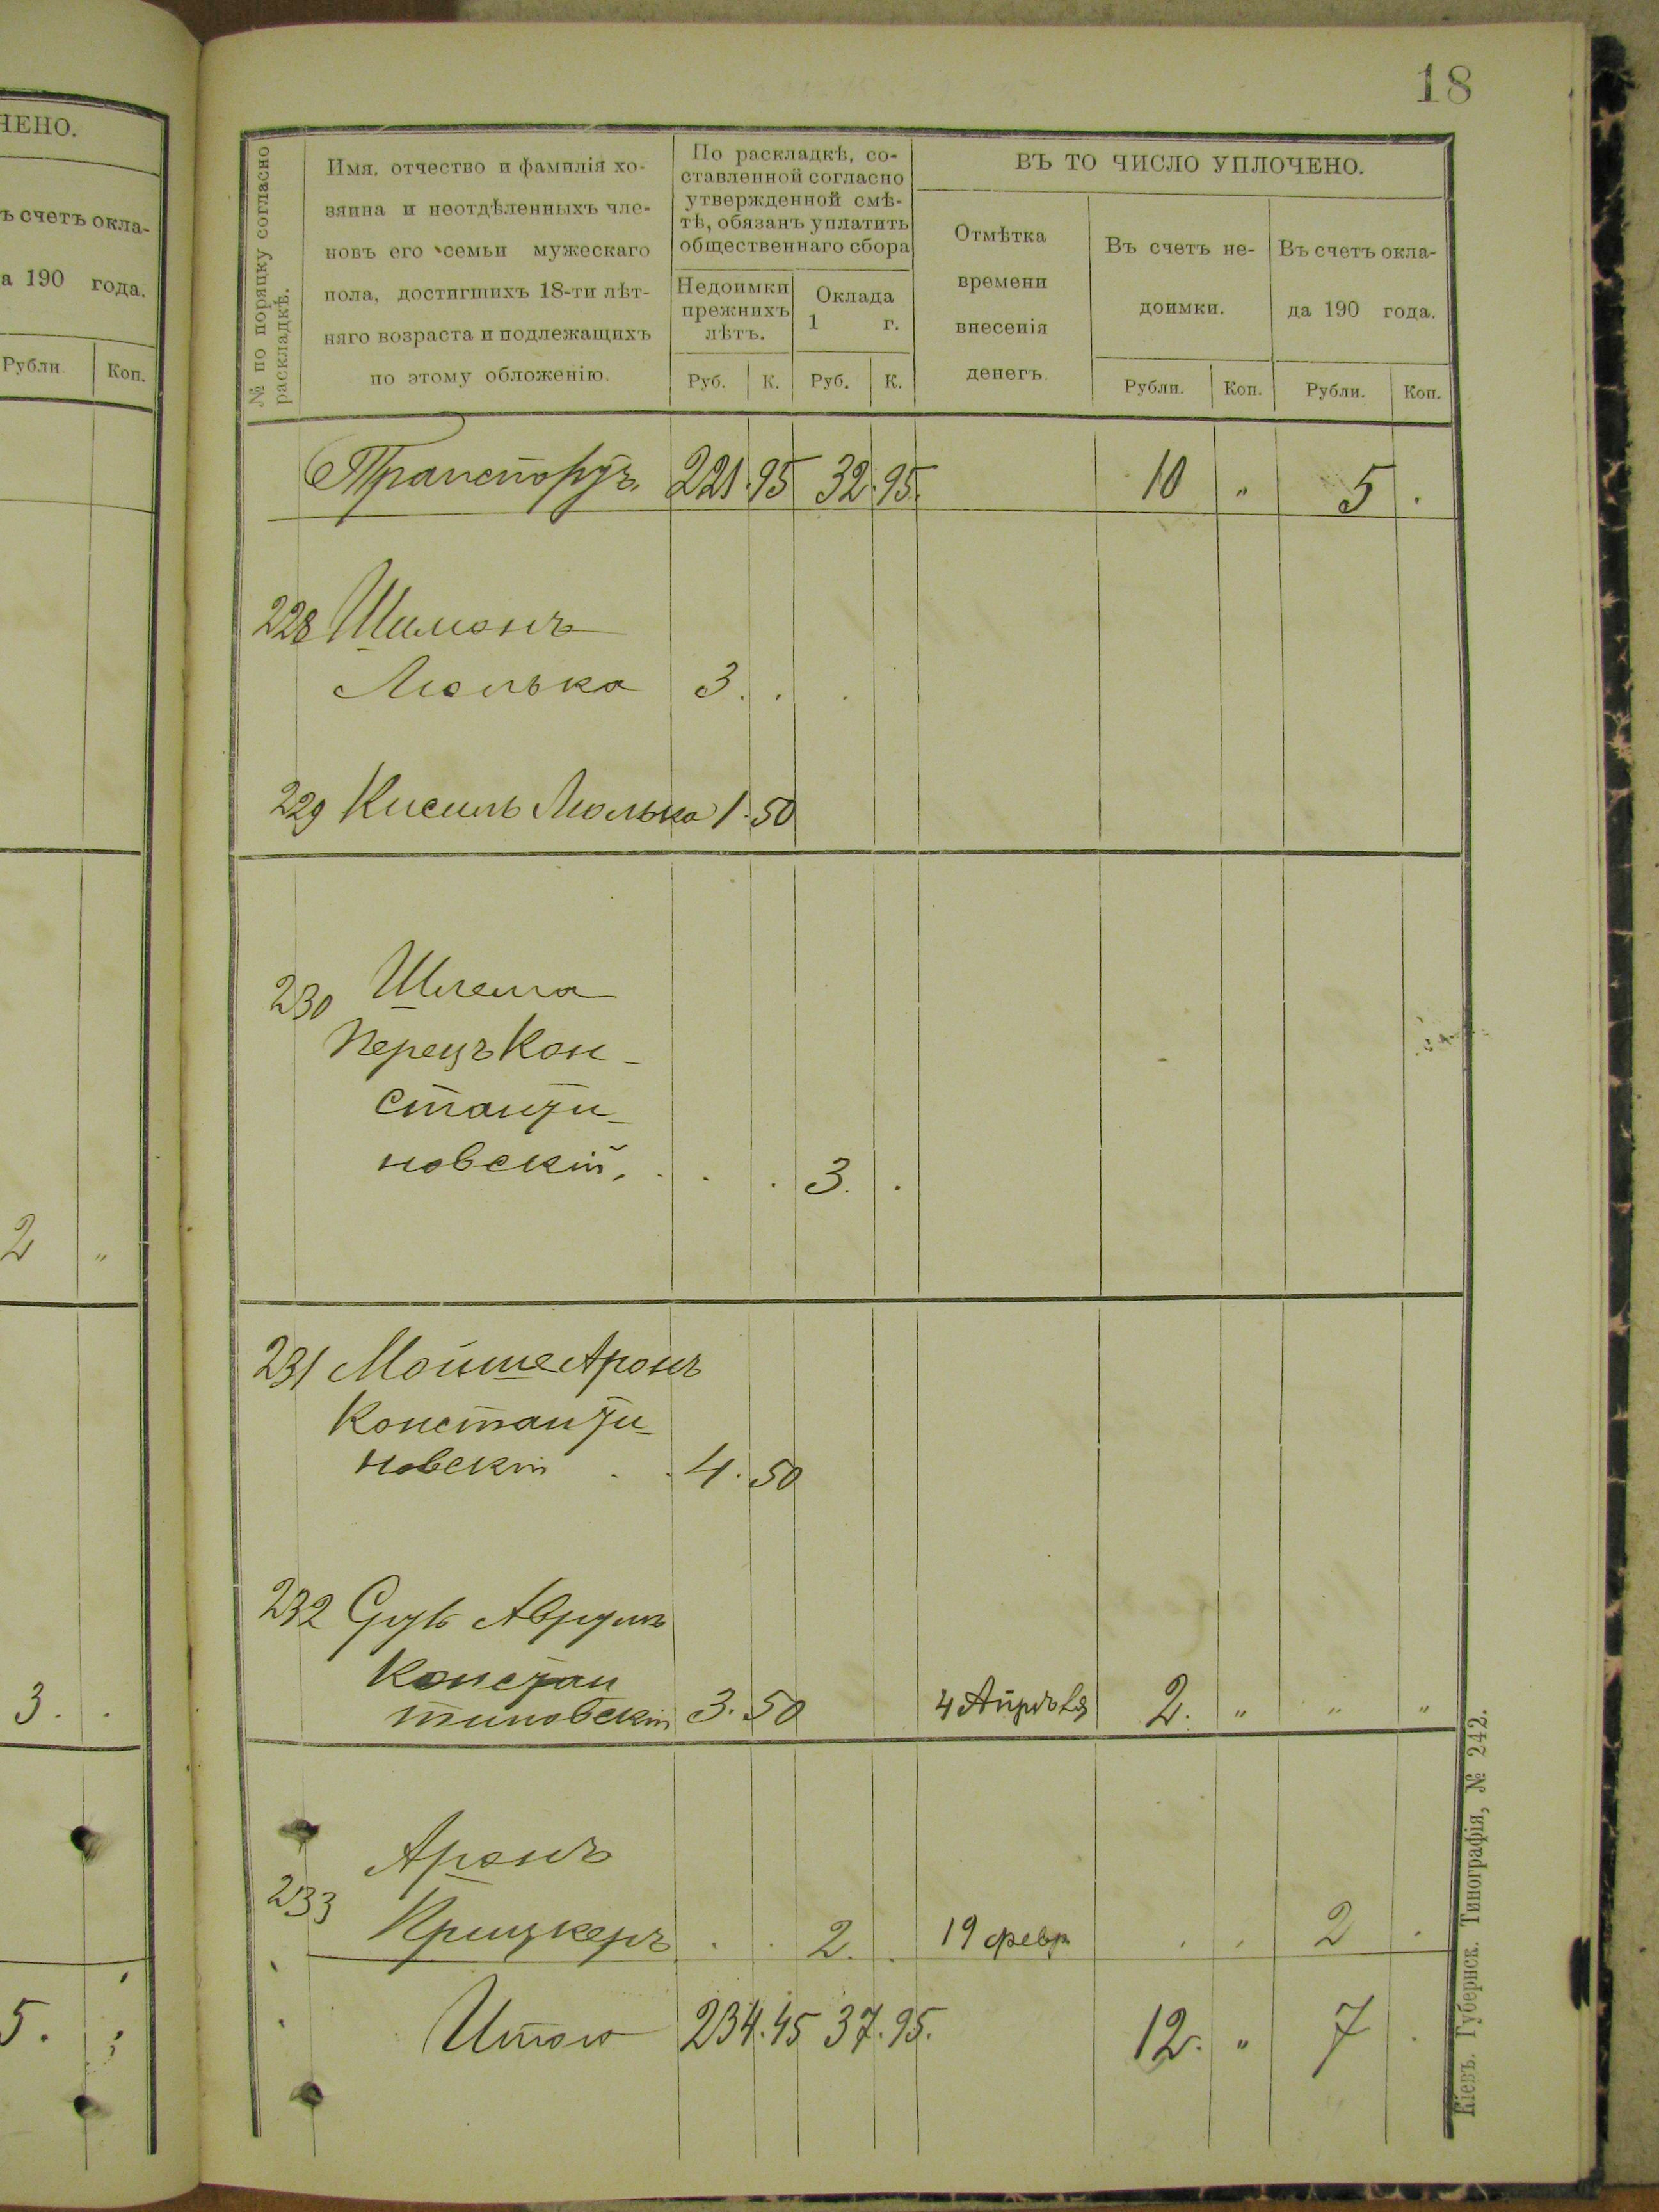 ЧЕНО.
ъ счетъ окла-
а 190 года.
Рубли Коп.
2 „
3. .
5.
18
№ по поряцку согласно
раскладкѣ.
Имя, отчество и фамилія хо-
зяина и неотдѣленныхъ чле-
новъ его семьи мужескаго
пола, достигшихъ 18-ти лѣт-
няго возраста и подлежащихъ
по этому обложенію.
По раскладкѣ, со-
ставленной согласно
утвержденной смѣ-
тѣ, обязанъ уплатить
общественнаго сбора
Недоимки
прежнихъ
лѣтъ.
Оклада
1 г.
Руб. К. Руб. К.
ВЪ ТО ЧИСЛО УПЛОЧЕНО.
Отмѣтка
времени
внесенія
денегъ.
Въ счетъ не-
доимки.
Въ счетъ окла-
да 190 года.
Рубли. Коп. Рубли. Коп.
Транспортъ. 221.95 32.95. 10 „ 5 .
228 Шимонъ
Люлька 3. . .
229 Кисиль Люлька 1.50
230 Шлема
Перецъ Кон-
станти-
новскій. . . . 3. .
231 Мойше Аронъ
Константи-
новскій . . 4.50
232 Срул Аврум
Констан
тиновскій 3.50 4 Апрѣля 2. „ „ „
233 Аронъ
Прицкеръ . . 2. . 19 февр . . 2 .
Итого 234.45 37.95. 12. „ 7 .
Кіевъ. Губернск. Типографія, № 242.